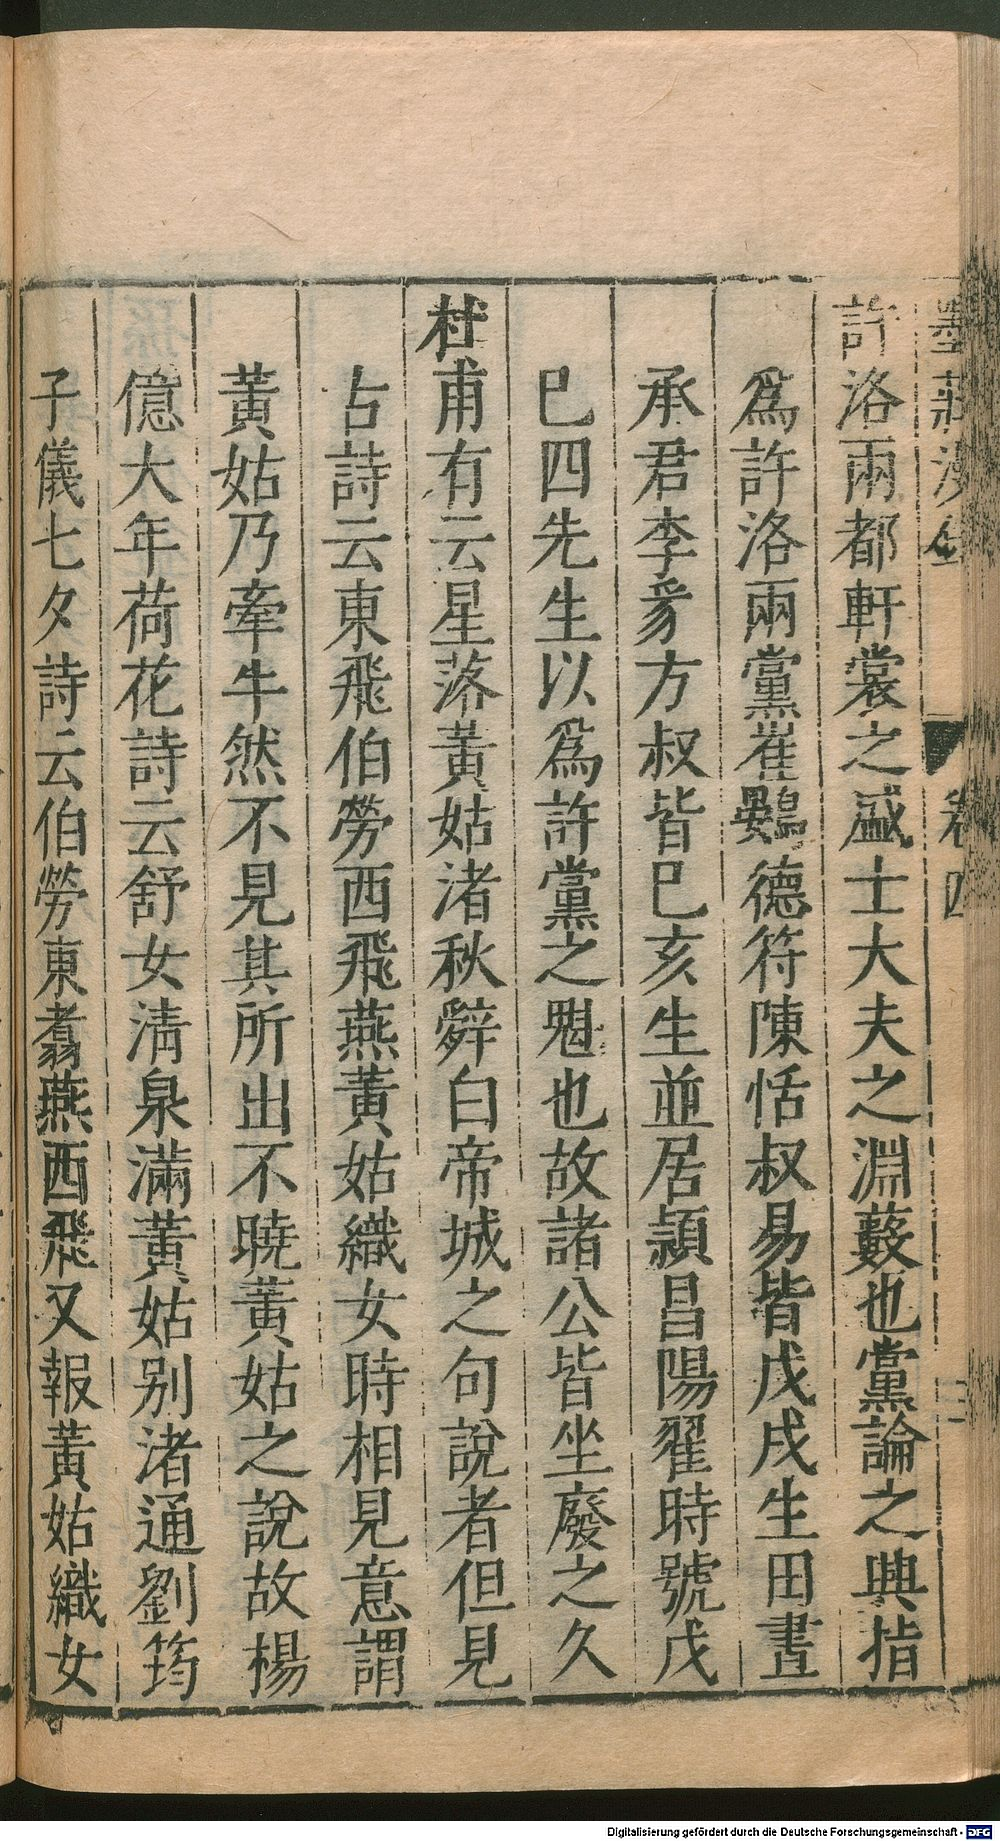 墨莊漫錄 卷四
許洛兩都軒裳之盛士大夫之淵藪也黨論之興指
爲許洛兩黨崔鷃德符陳恬叔易皆戊戌生田晝
承君李豸方叔皆巳亥生並居潁昌陽翟時號戊
巳四先生以爲許黨之魁也故諸公皆坐廢之久
杜甫有云星落黃姑渚秋辭白帝城之句說者但見
占詩云東飛伯勞西飛燕黃姑織女時相見意謂
黃姑乃牽牛然不見其所出不曉黃姑之說故楊
億大年荷花詩云舒女清泉滿黃姑別渚通劉筠
子儀七夕詩云伯勞東翥燕西飛又報黃姑織女
Digitalisierung gefördert durch die Deutsche Forschungsgemeinschaft - DFG